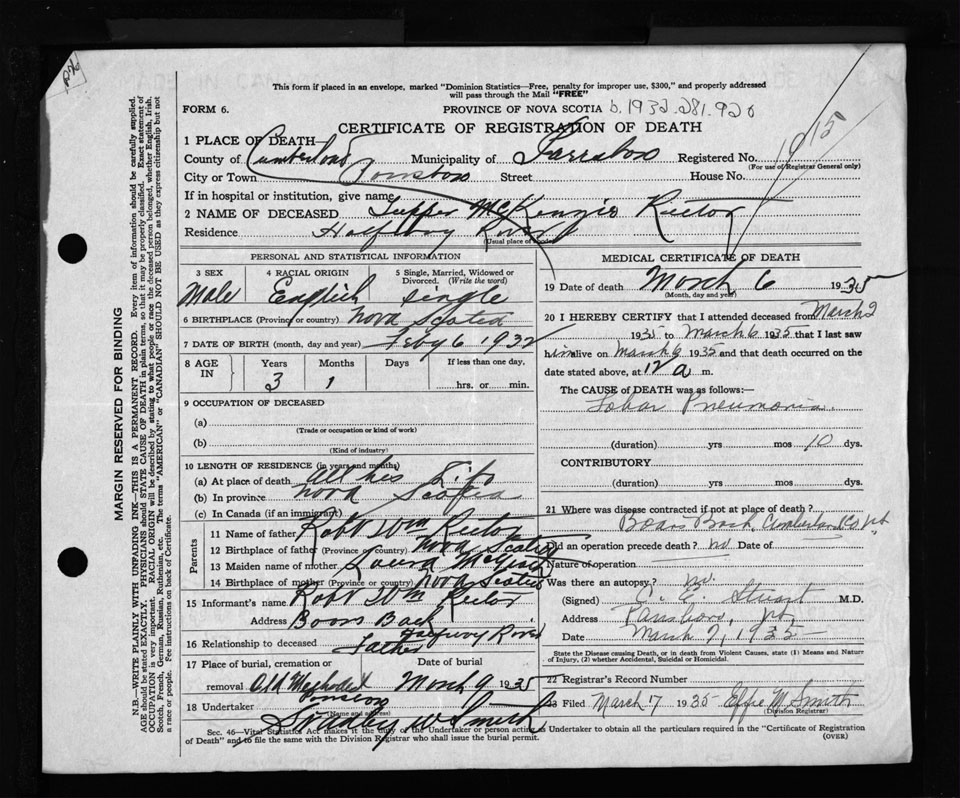 This form if placed in an envelope, marked "Dominion Statistics—Free, penalty for improper use, $300," and properly addressed
will pass through the Mail "FREE"
FORM 6. PROVINCE OF NOVA SCOTIA b.1932.281.920
CERTIFICATE OF REGISTRATION OF DEATH
1 PLACE OF DEATH—
County of Cumberland Municipality of Parrsboro Registered No.
(For use of Registrar General only)
City or Town Parrsboro Street House No.
If in hospital or institution, give name
2 NAME OF DECEASED Tupper McKenzie Rector
Residence Halfway River
(Usual place of abode)
PERSONAL AND STATISTICAL INFORMATION
3 SEX 4 RACIAL ORIGIN 5 Single, Married, Widowed or Divorced. (Write the word)
Male English single
6 BIRTHPLACE (Province or country) Nova Scotia
7 DATE OF BIRTH (month, day and year) Feby 6 1932
8 AGE IN Years Months Days If less than one day,
3 1 hrs. or min.
9 OCCUPATION OF DECEASED
(a)
(Trade or occupation or kind of work)
(b)
(Kind of industry)
10 LENGTH OF RESIDENCE (in years and months)
(a) At place of death all his life
(b) In province Nova Scotia
(c) In Canada (if an immigrant)
Parents
11 Name of father Robt Wm Rector
12 Birthplace of father (Province or country) Nova Scotia
13 Maiden name of mother Laura
14 Birthplace of mother (Province or country) Nova Scotia
15 Informant's name Robt Wm Rector
Address Boars Back
Halfway River
16 Relationship to deceased Father
17 Place of burial, cremation or Date of burial
removal Old Methodist March 9 1935
18 Undertaker
(Name and address)
Stanley W Smith
MEDICAL CERTIFICATE OF DEATH
19 Date of death March 6 1935
(Month, day and year)
20 I HEREBY CERTIFY that I attended deceased from March 2
1935 to March 6 1935 that I last saw
him alive on March 6 1935 and that death occurred on the
date stated above, at 12 a m.
The CAUSE OF DEATH was as follows:—
Lobar Pneumonia
(duration) yrs mos 10 dys.
CONTRIBUTORY
(duration) yrs mos dys.
21 Where was disease contracted if not at place of death?
Boars Back, Cumberland Co NS
Did an operation precede death? no Date of
Nature of operation
Was there an autopsy? No.
(Signed) Stuart M.D.
Address Parrsboro, NS,
Date March 7, 1935
State the Disease causing Death, or in death from Violent Causes, state (1) Means and
Nature of Injury, (2) whether Accidental, Suicidal or Homicidal.
22 Registrar's Record Number
23 Filed March 7 1935 Effie M Smith
(Division Registrar)
Sec. 46—Vital Statistics Act makes it the duty of the Undertaker or person acting as Undertaker to obtain all the particulars required in the "Certificate of Registration
of Death" and to file the same with the Division Registrar who shall issue the burial permit. (OVER)
MARGIN RESERVED FOR BINDING
N.B.—WRITE PLAINLY WITH UNFADING INK—THIS IS A PERMANENT RECORD. Every item of information should be carefully supplied.
AGE should be stated EXACTLY. PHYSICIANS should STATE CAUSE OF DEATH in plain terms, so that it may be properly classified. Exact statement of
OCCUPATION is very important. RACIAL ORIGIN will be described by stating to what people or race the deceased person belonged, whether English, Irish,
Scotch, French, German, Russian, Ruthenian, etc. The terms "AMERICAN" or "CANADIAN" SHOULD NOT BE USED as they express citizenship but not
a race or people. Fee instructions on back of Certificate.